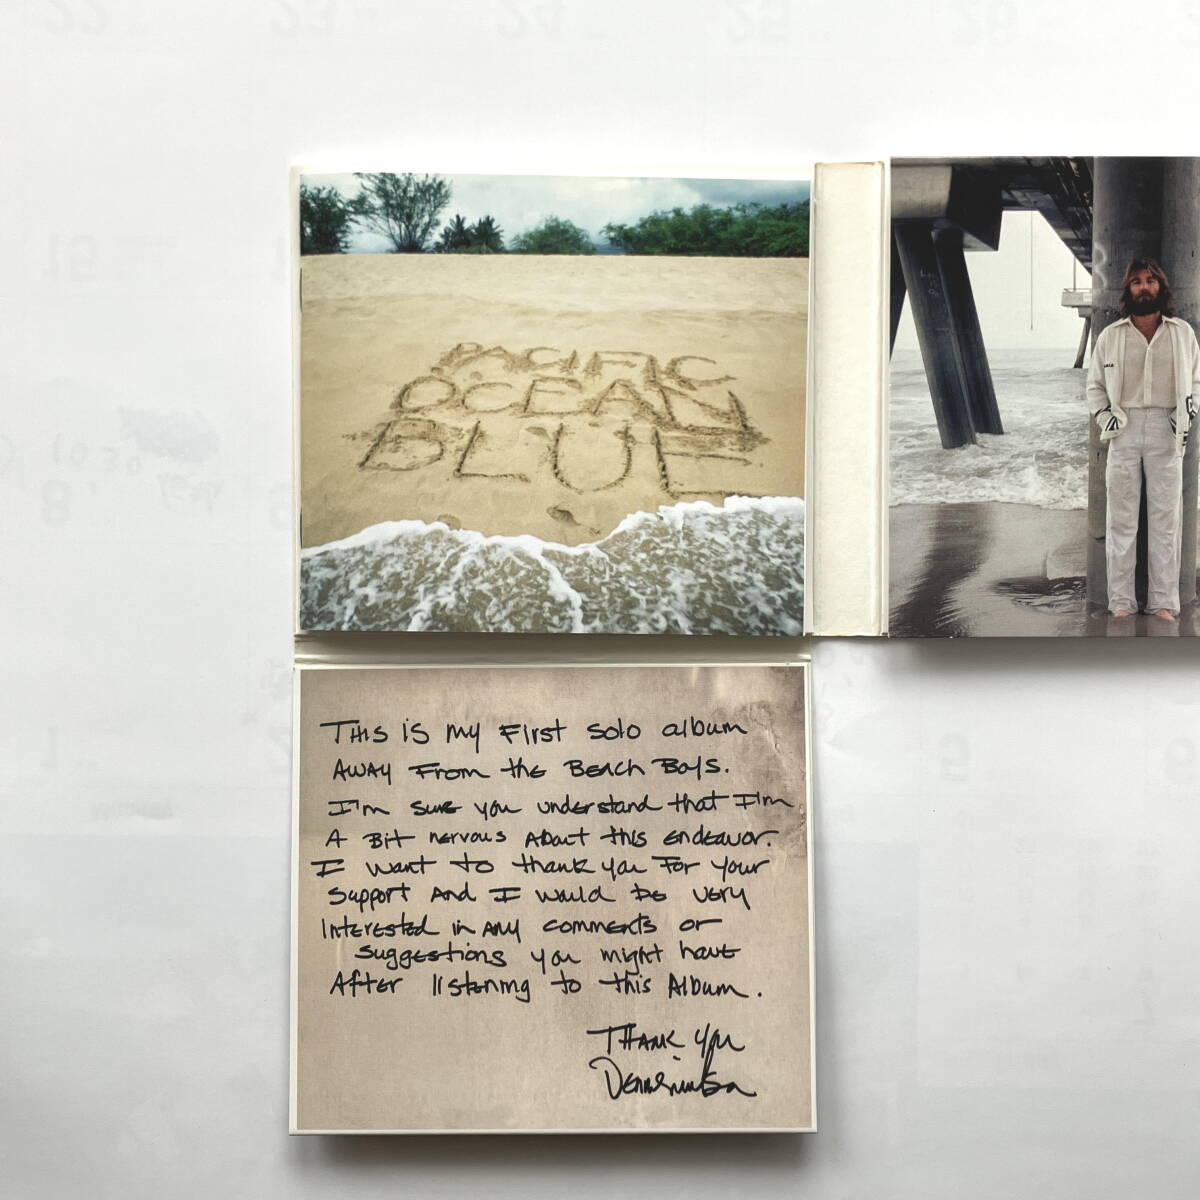 PACIFIC
OCEAN
BLUE
THIS is my First solo album
AWAY From the BEACH BOYS.
I'm sure you understand that I'm
A Bit nervous About this endeavor.
I want to thank you For your
support And I would be very
Interested in ANY comments or
suggestions you might have
After listening to this Album.
THANK YOU
Dennis Wilson